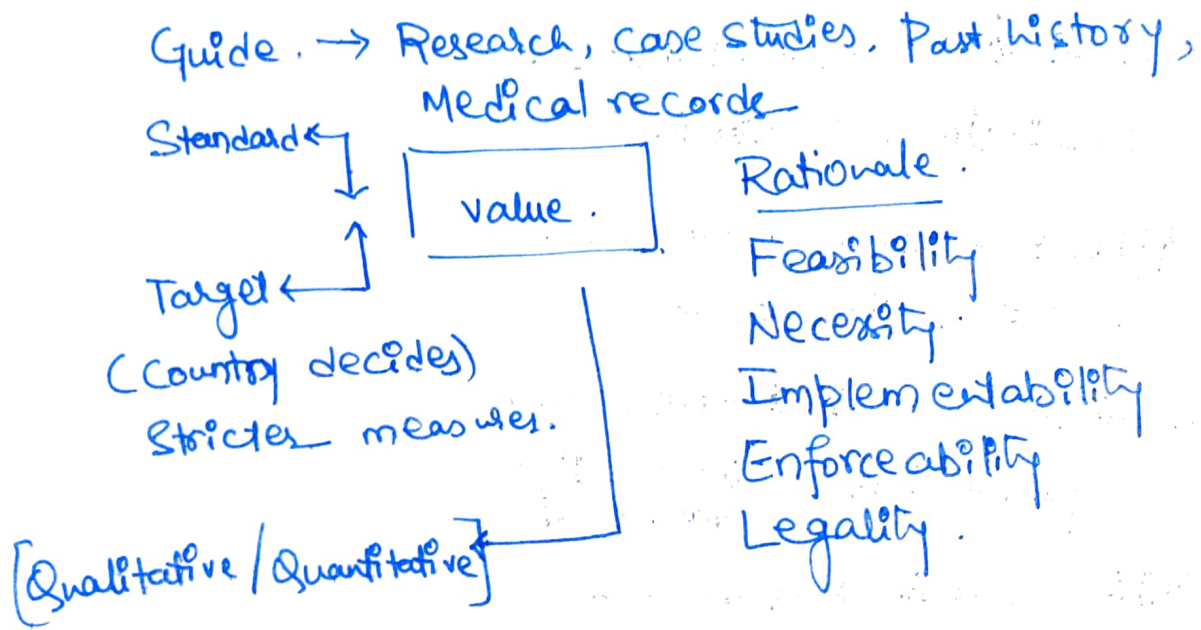 Guide. → Research, case studies, Past history,
Medical records
Standard
value.
Target
(Country decides)
Stricter measures.
[Qualitative/Quantitative]
Rationale.
Feasibility
Necessity.
Implementability
Enforceability
Legality.